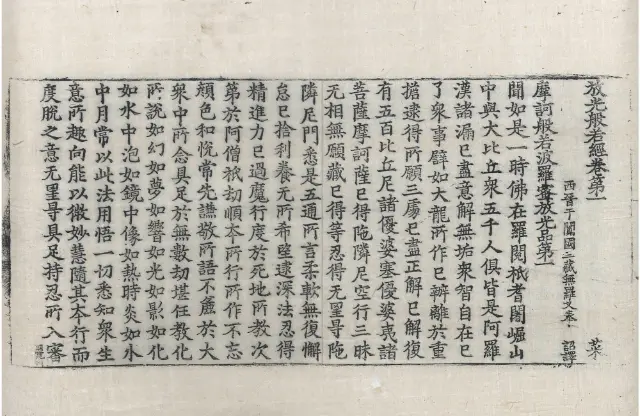 放光般若經卷第一　菜
西晉于闐國三藏無羅叉奉　詔譯
摩訶般若波羅蜜放光品第一
聞如是一時佛在羅閱祇耆闍崛山
中與大比丘衆五千人俱皆是阿羅
漢諸漏已盡意解無垢衆智自在已
了衆事譬如大龍所作已辦離於重
擔逮得所願三處已盡正解已解復
有五百比丘尼諸優婆塞優婆夷諸
菩薩摩訶薩已得陁隣尼空行三昧
无相無願藏已得等忍得无罣㝵陁
隣尼門悉是五通所言柔軟無復懈
怠已捨利養无所希望逮深法忍得
精進力已過魔行度於死地所教次
第於阿僧祇劫順本所行所作不忘
顏色和悅常先謙敬所語不麁於大
衆中所念具足於無數劫堪任教化
所說如幻如夢如響如光如影如化
如水中泡如鏡中像如熱時炎如水
中月常以此法用悟一切悉知衆生
意所趣向能以微妙慧隨其本行而
度脫之意无罣㝵具足持忍所入審